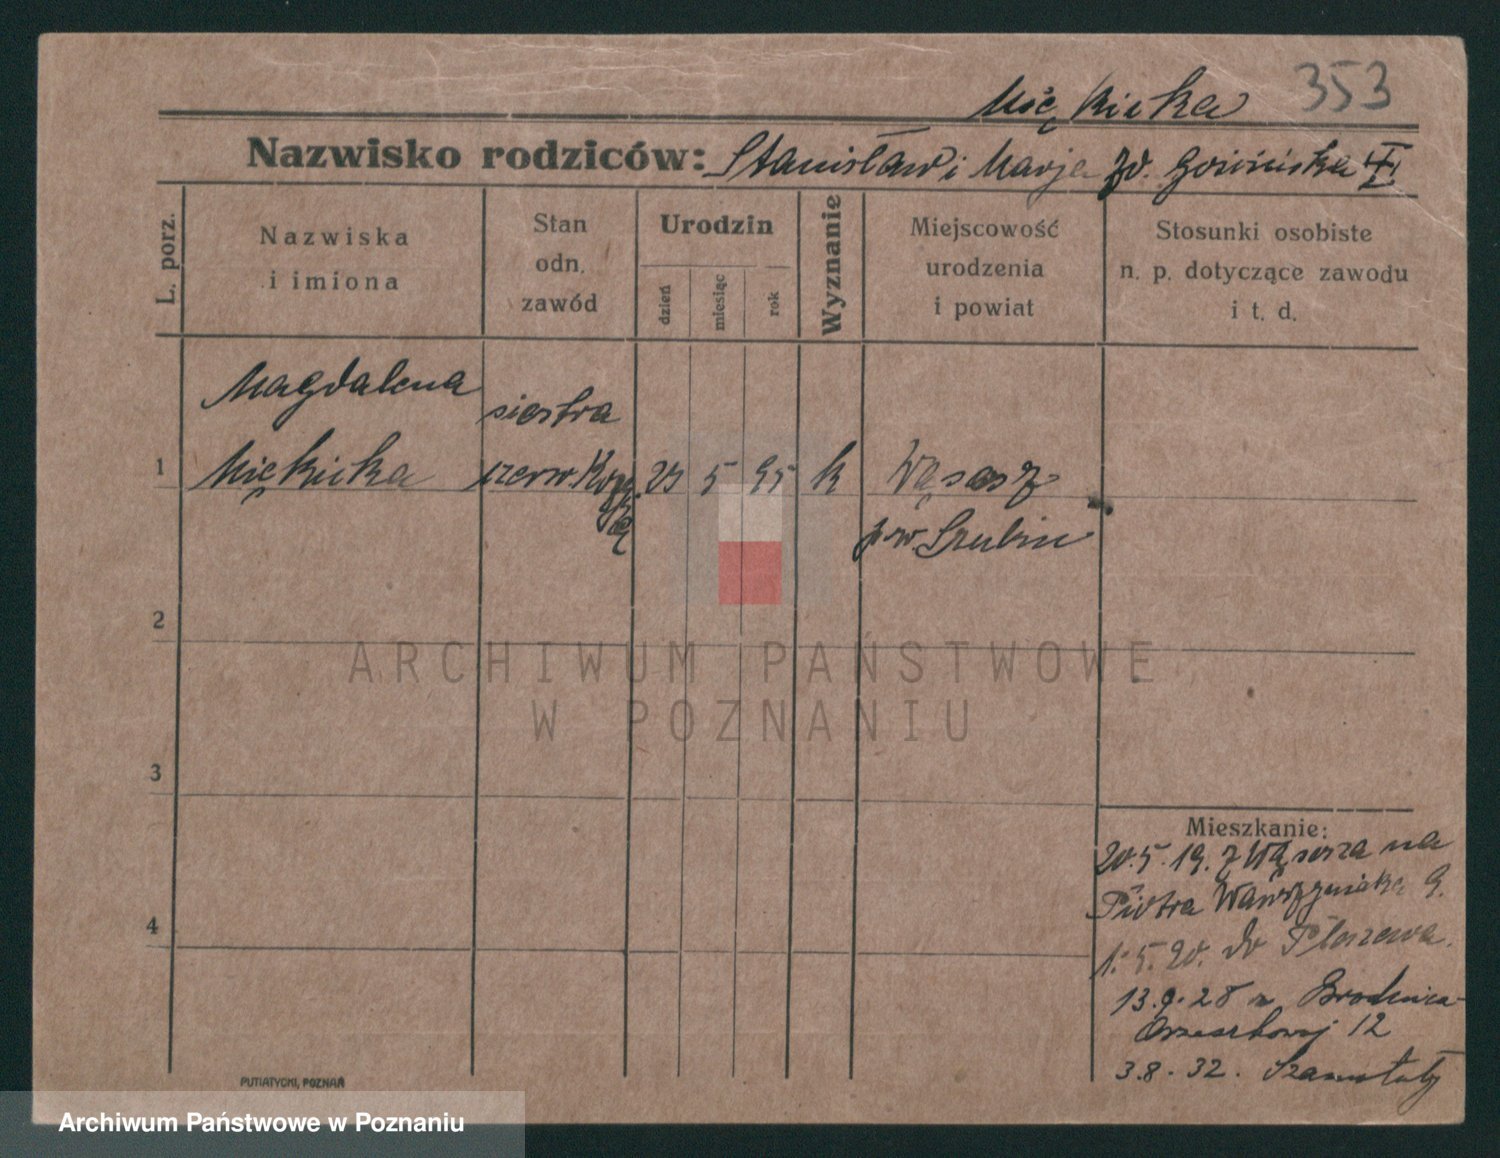 Miękicka 353
Nazwisko rodziców: Stanisław i Marja zd.
L. porz.
Nazwiska
i imiona
Stan
odn.
zawód
Urodzin
dzień
miesiąc
rok
Wyznanie
Miejscowość
urodzenia
i powiat
Stosunki osobiste
n. p. dotyczące zawodu
i t. d.
Magdalena
siostra
1 Miękicka czerw. 5 95 k Wąsosz
pow. Szubin
2
ARCHIWUM PAŃSTWOWE
W POZNANIU
3
4
Mieszkanie:
20.5.19. z Wąsosza na
Piotra Wawrzyniaka 9.
1.5.20. do Pleszewa.
13.9.28 z Brodnica
Orzeszkowej 12
3.8.32. Szamotuły
PUTIATYCKI, POZNAŃ
Archiwum Państwowe w Poznaniu